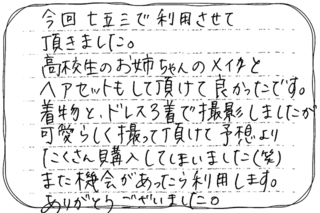 今回七五三で利用させて
頂きました。
高校生のお姉ちゃんのメイクと
ヘアセットもして頂けて良かったです。
着物と、ドレス3着で撮影しましたが
可愛らしく撮って頂けて予想より
たくさん購入してしまいました(笑)
また機会があったら利用します。
ありがとうございました。